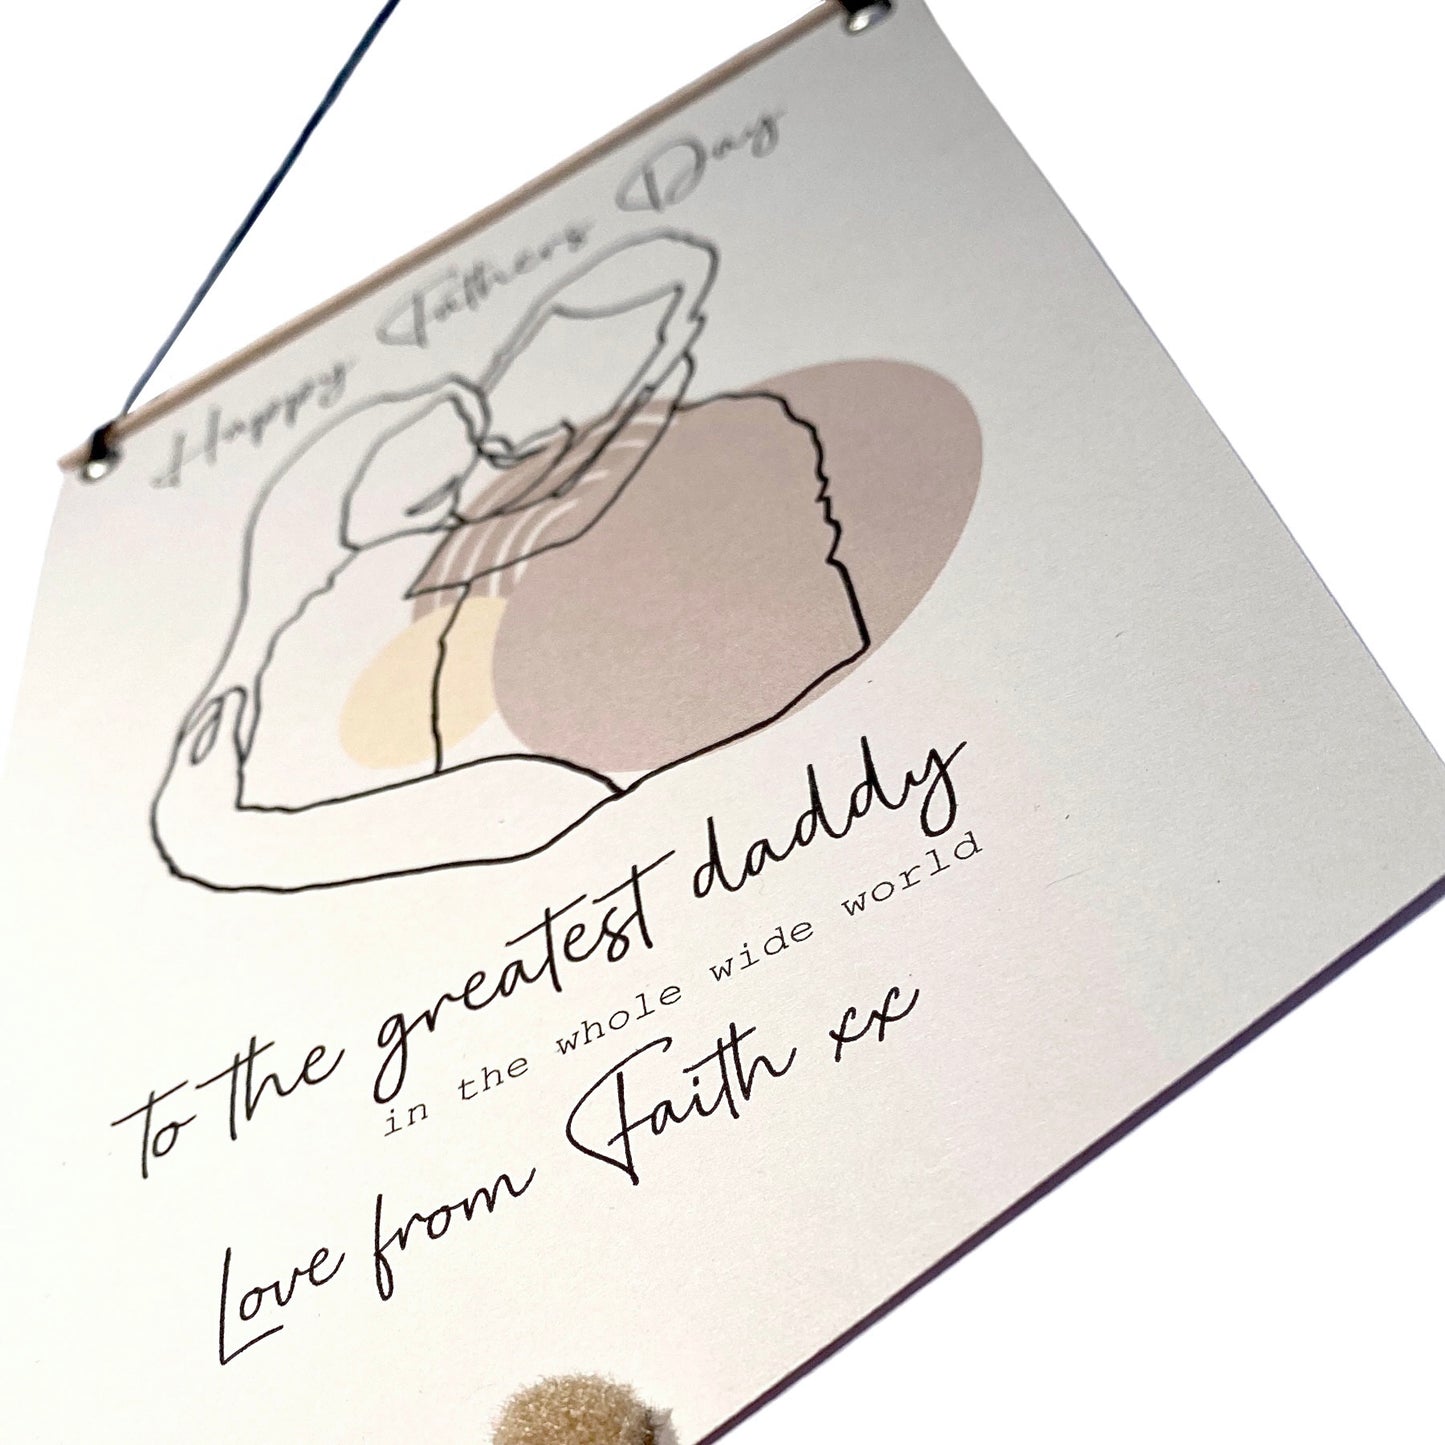 Happy Fathers Day
to the greatest daddy
in the whole wide world
Love from Faith xx